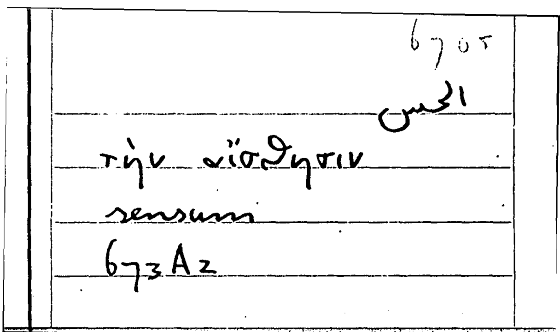 الحس
τὴν αἴσθησιν
sensum
673A2